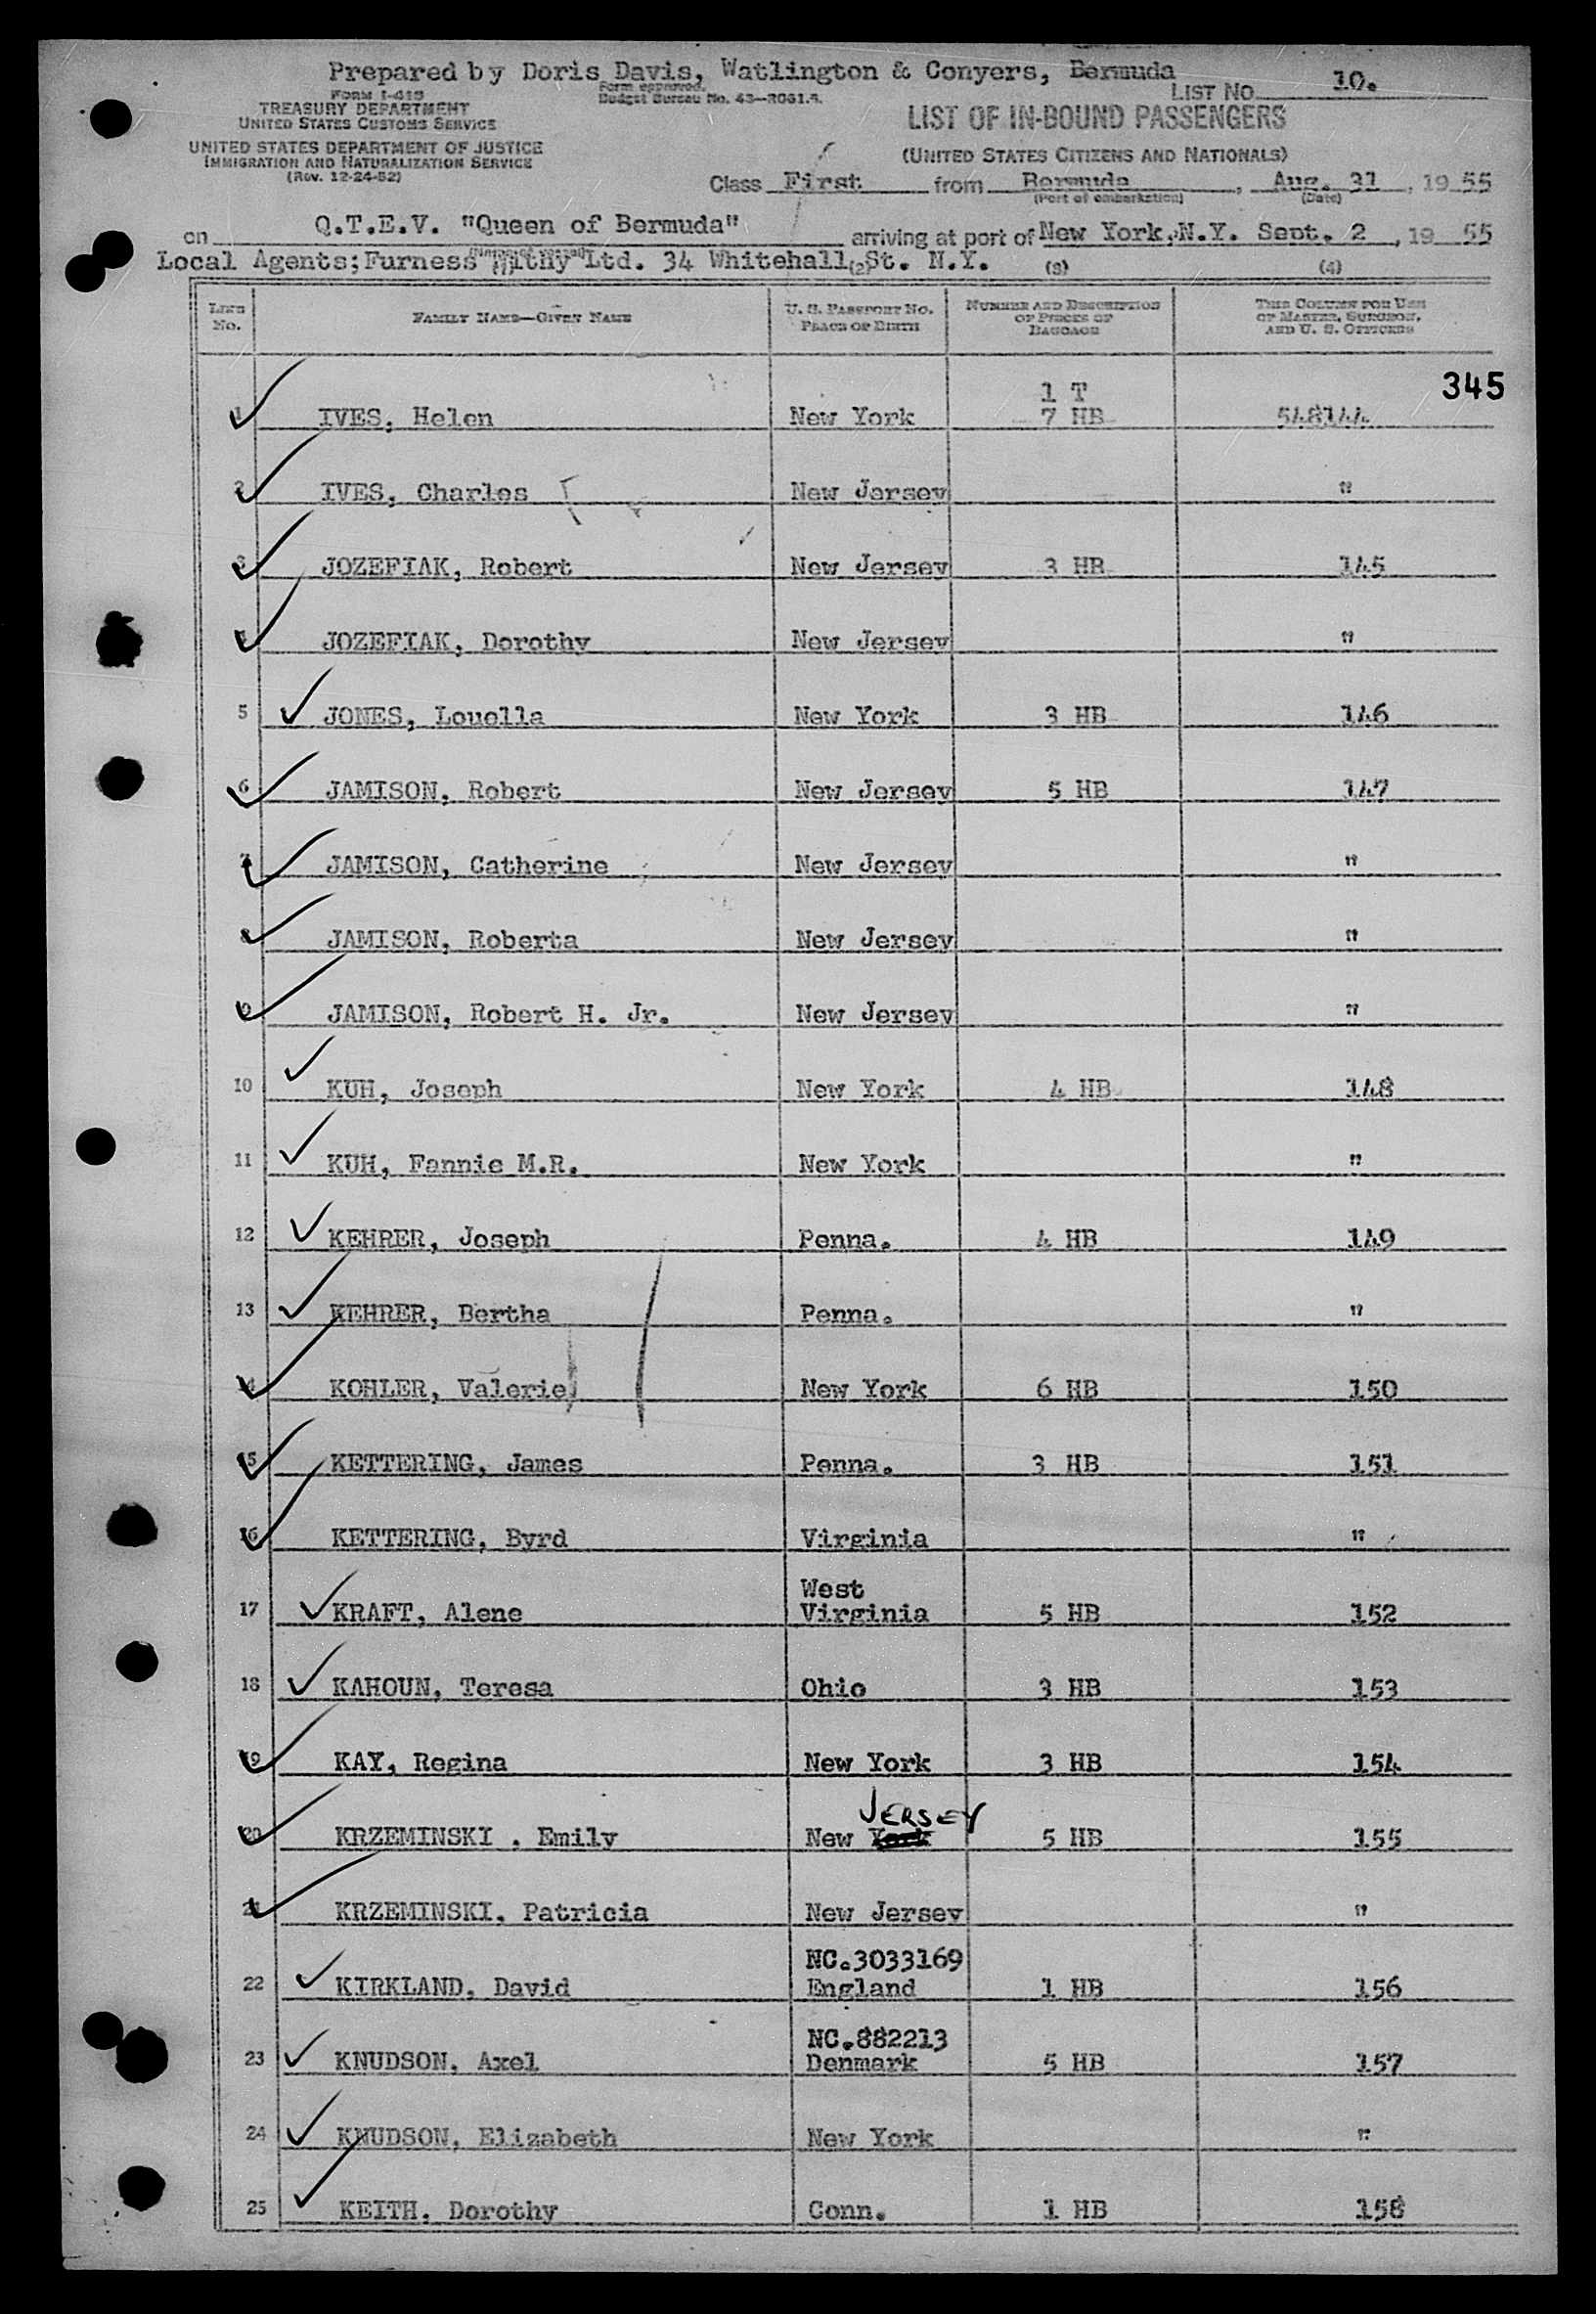 Prepared by Doris Davis, Watlington & Conyers, Bermuda
FORM I-415
Form approved.
Budget Bureau No. 43—R061.4.
LIST NO. 10.
TREASURY DEPARTMENT
UNITED STATES CUSTOMS SERVICE
LIST OF IN-BOUND PASSENGERS
UNITED STATES DEPARTMENT OF JUSTICE
IMMIGRATION AND NATURALIZATION SERVICE
(Rev. 12-24-52)
(UNITED STATES CITIZENS AND NATIONALS)
Class First from Bermuda, Aug. 31, 1955
(Port of embarkation) (Date)
on Q.T.E.V. "Queen of Bermuda" arriving at port of New York, N.Y. Sept. 2, 1955
Local Agents; Furness Withy Ltd. 34 Whitehall St. N.Y.
(2) (3) (4)
LINE No. FAMILY NAME—GIVEN NAME U. S. PASSPORT NO. PLACE OF BIRTH NUMBER AND DESCRIPTION OF PIECES OF BAGGAGE THIS COLUMN FOR USE OF MASTER, SURGEON, AND U. S. OFFICERS
345
1 T
1 IVES, Helen New York 7 HB 548144
2 IVES, Charles New Jersey "
3 JOZEFIAK, Robert New Jersey 3 HB 145
4 JOZEFIAK, Dorothy New Jersey "
5 JONES, Louella New York 3 HB 146
6 JAMISON, Robert New Jersey 5 HB 147
7 JAMISON, Catherine New Jersey "
8 JAMISON, Roberta New Jersey "
9 JAMISON, Robert H. Jr. New Jersey "
10 KUH, Joseph New York 4 HB 148
11 KUH, Fannie M.R. New York "
12 KEHRER, Joseph Penna. 4 HB 149
13 KEHRER, Bertha Penna. "
14 KOHLER, Valerie New York 6 HB 150
15 KETTERING, James Penna. 3 HB 151
16 KETTERING, Byrd Virginia "
West
17 KRAFT, Alene Virginia 5 HB 152
18 KAHOUN, Teresa Ohio 3 HB 153
19 KAY, Regina New York 3 HB 154
JERSEY
20 KRZEMINSKI . Emily New York 5 HB 155
21 KRZEMINSKI, Patricia New Jersey "
NC.3033169
22 KIRKLAND, David England 1 HB 156
NC.882213
23 KNUDSON, Axel Denmark 5 HB 157
24 KNUDSON, Elizabeth New York "
25 KEITH, Dorothy Conn. 1 HB 158